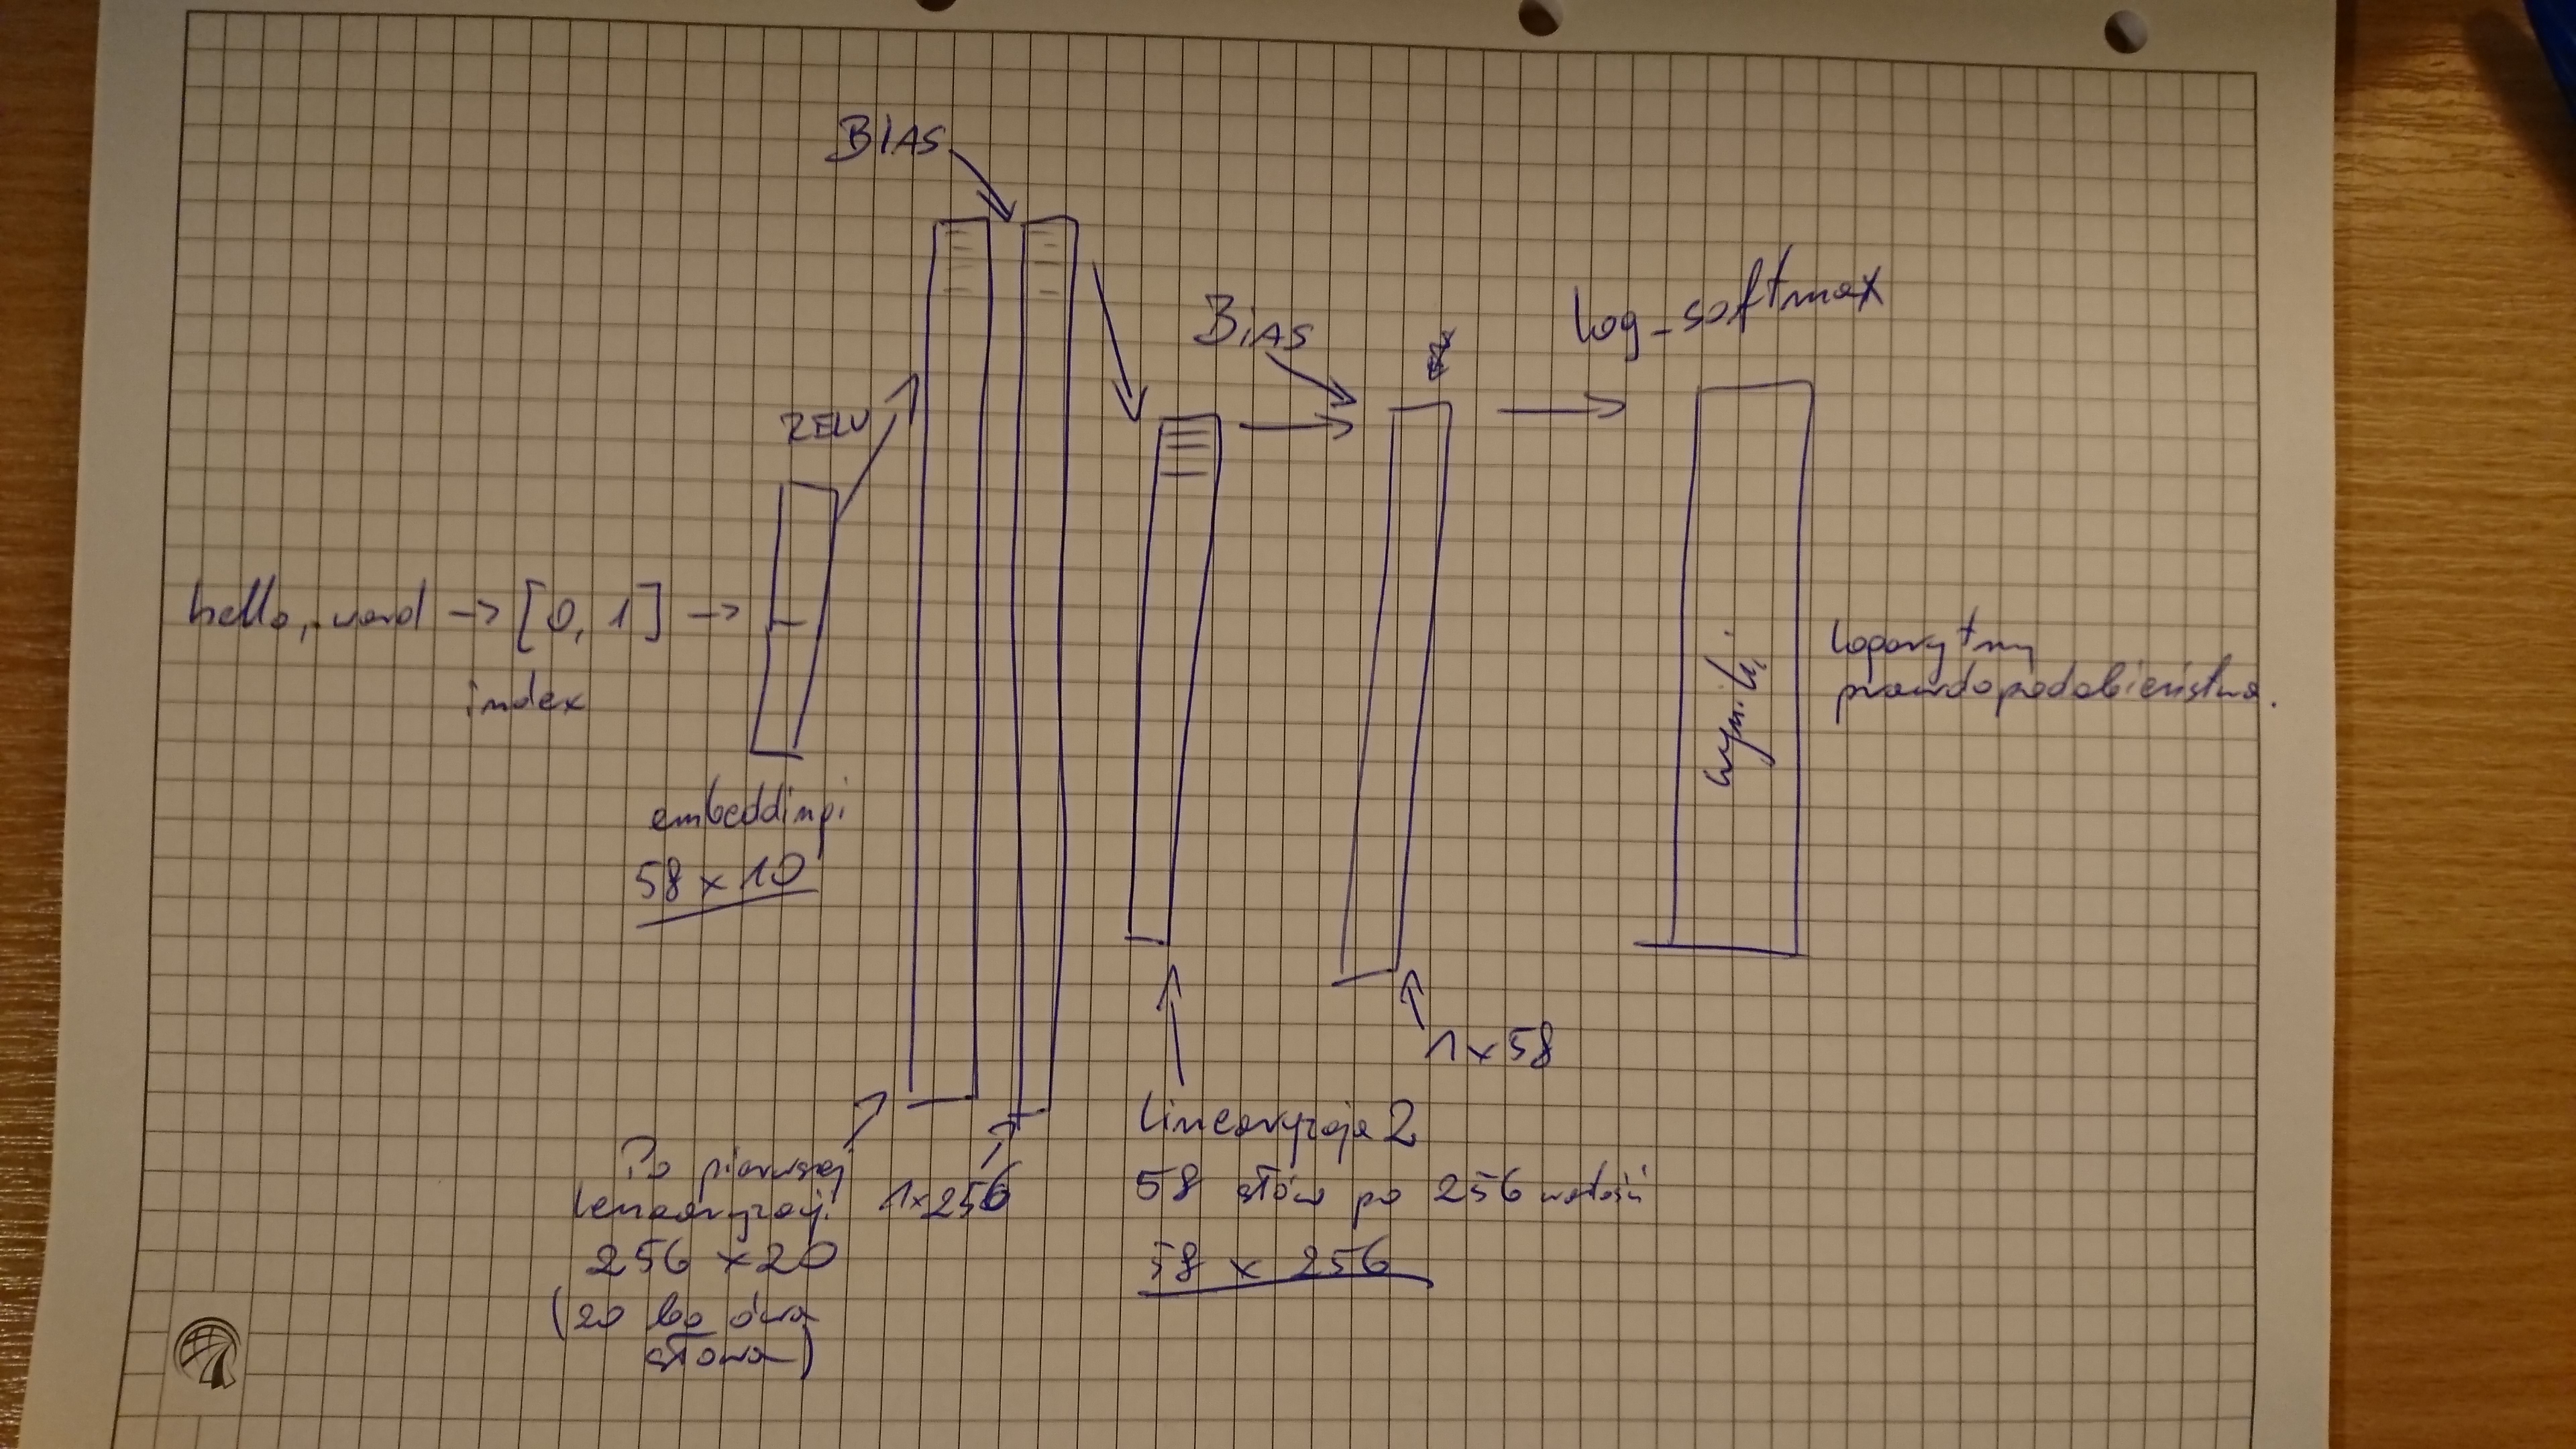 BIAS
RELU
hello, word -> [0, 1] ->
index
embeddingi
58 x 10
Po pierwszej
lemaryzacji
256 x 20
(20 bo dwa
słowa)
1x256
BIAS
linearyzacja 2
58 słów po 256 wartości
58 x 256
1 x 58
log-softmax
wyniki
logarytmy
prawdopodobieństwa.